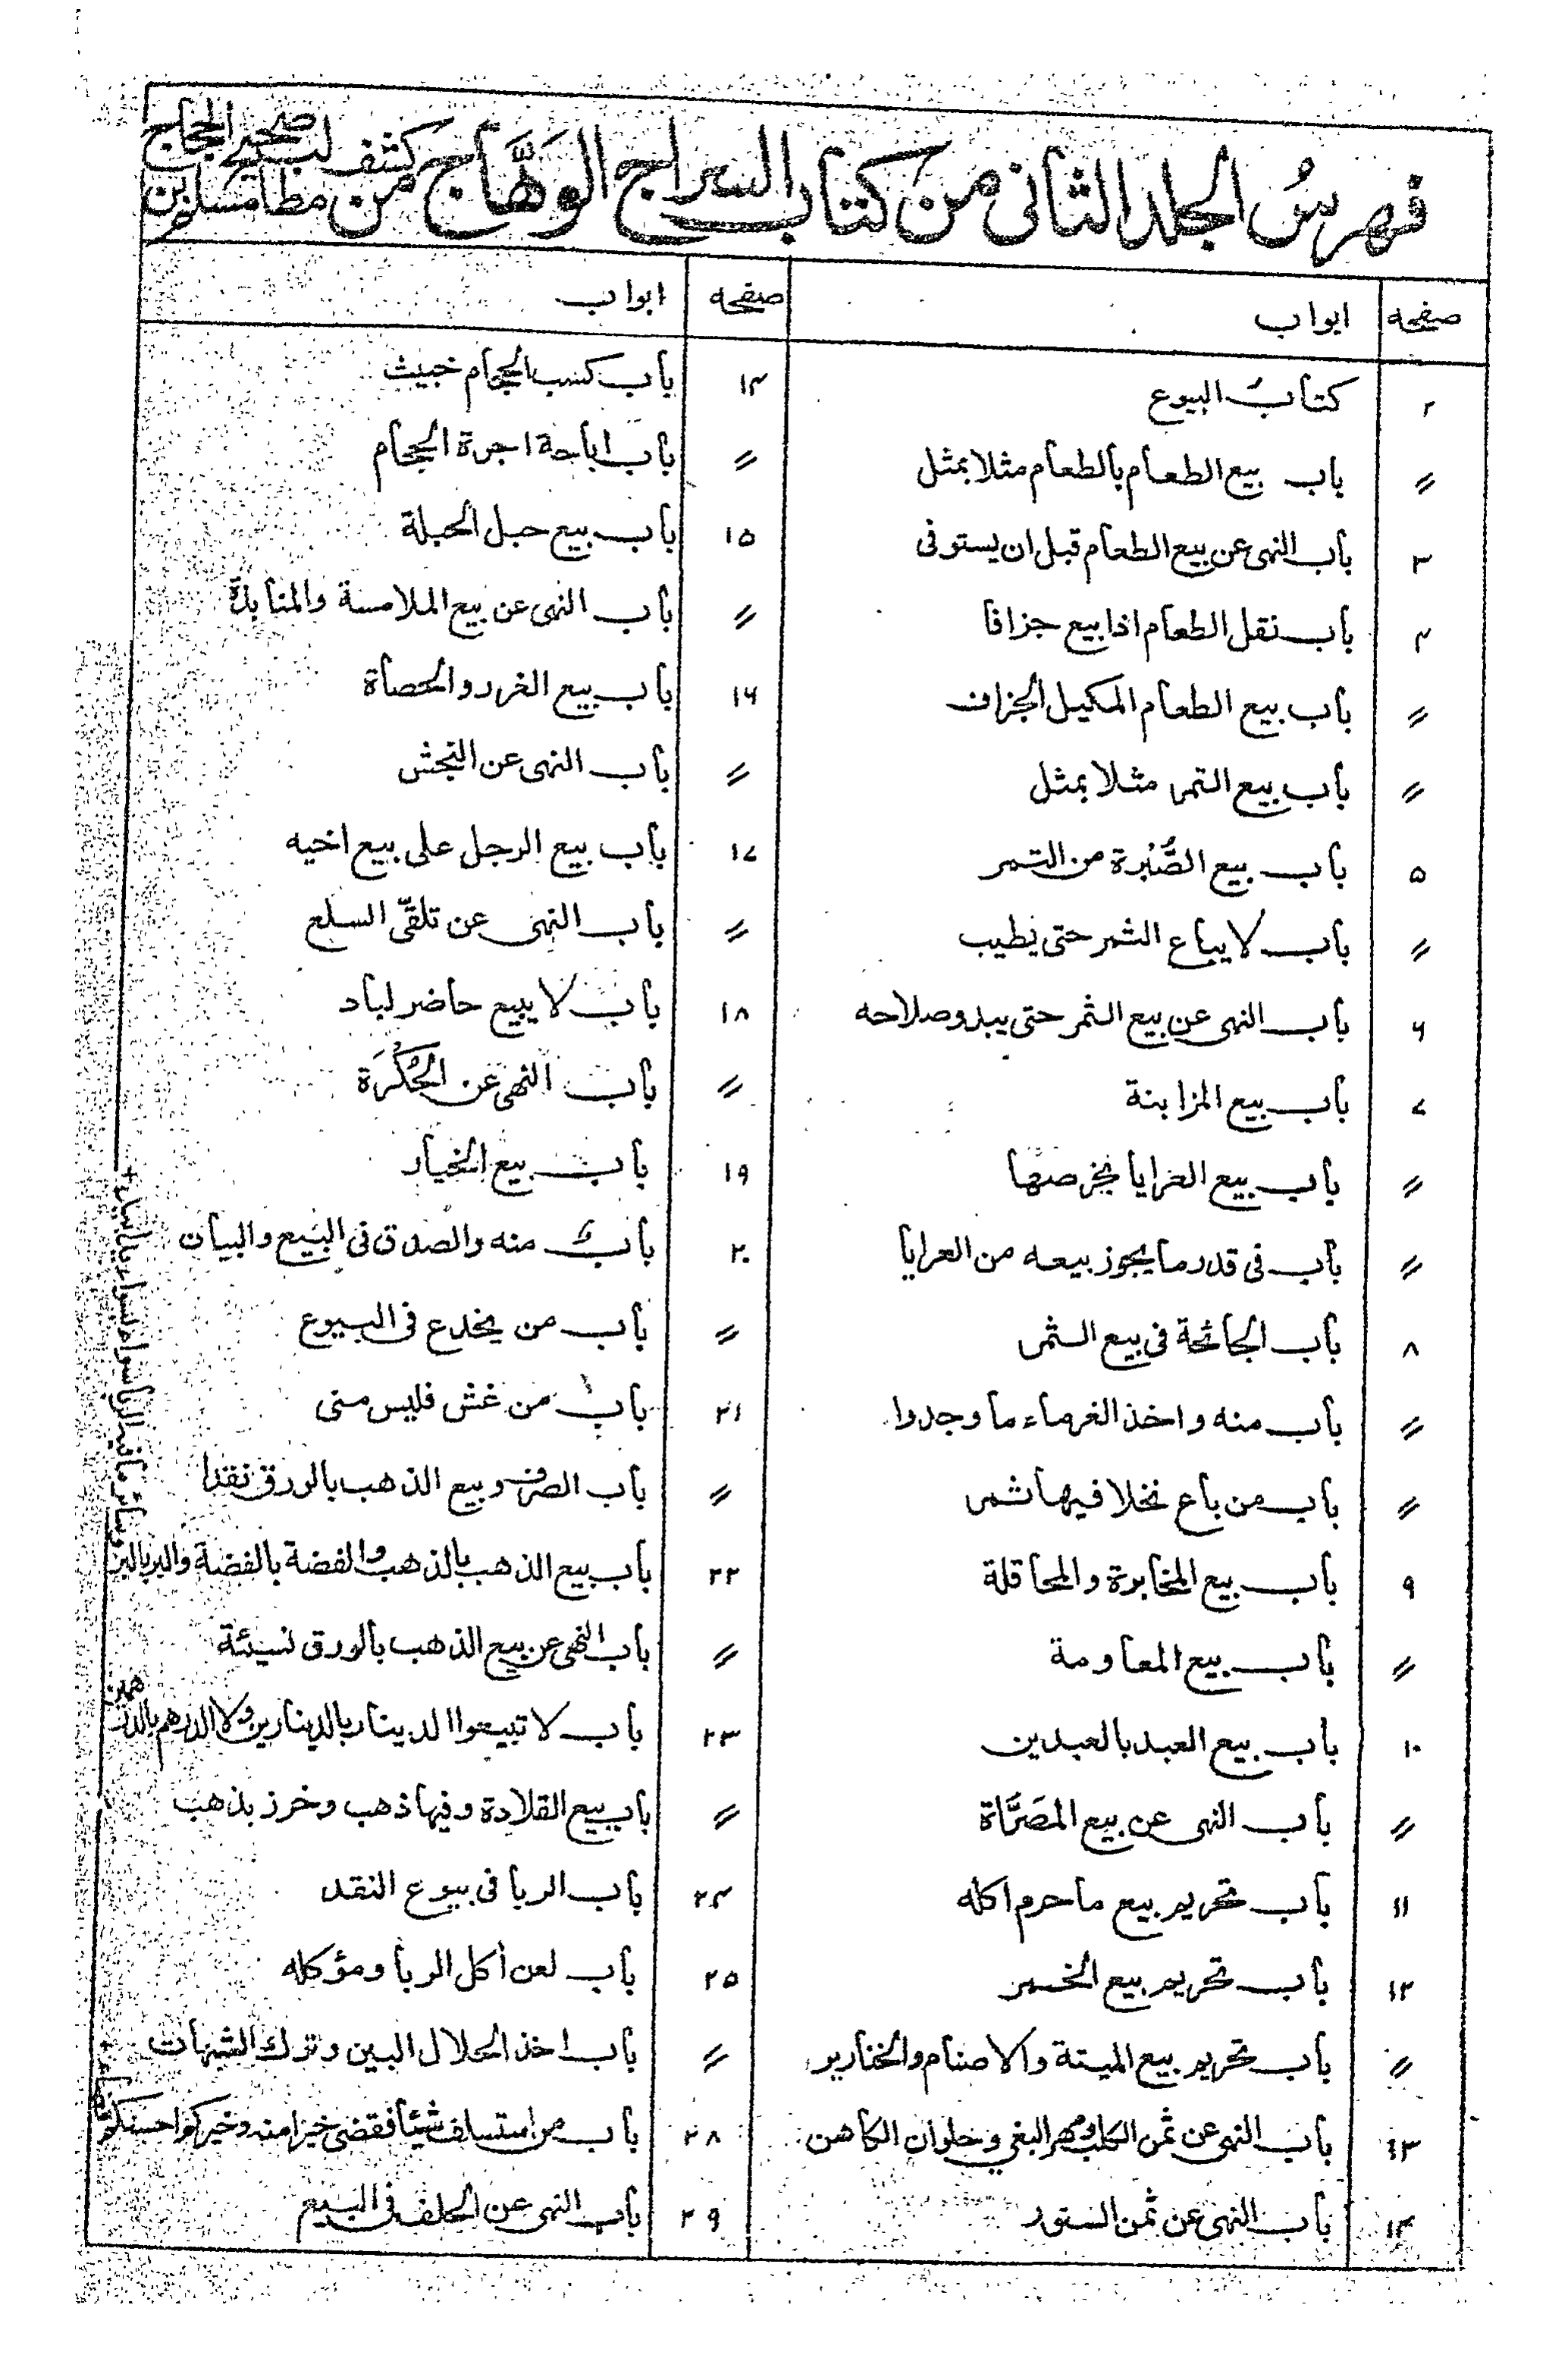 فهرسُ الجلد الثانى من كتاب السراج الوَهَّاج من كشف مطالب صحيح مسلم بن الحجاج
صفحه ابواب
٢ كتابُ البيوع
〃 باب بيع الطعام بالطعام مثلا بمثل
٣ باب النهى عن بيع الطعام قبل ان يستوفى
٤ باب نقل الطعام اذا بيع جزافا
〃 باب بيع الطعام المكيل الجزاف
〃 باب بيع التمر مثلا بمثل
٥ باب بيع الصُّبْرة من التمر
〃 باب لا يباع الثمر حتى يطيب
٦ باب النهى عن بيع الثمر حتى يبدو صلاحه
٧ باب بيع المزابنة
〃 باب بيع العرايا بخرصها
〃 باب فى قدر ما يجوز بيعه من العرايا
٨ باب الجائحة فى بيع الثمر
〃 باب منه واخذ الغرماء ما وجدوا
〃 باب من باع نخلا فيها ثمر
٩ باب بيع المخابرة والمحاقلة
〃 باب بيع المعاومة
١٠ باب بيع العبد بالعبدين
〃 باب النهى عن بيع المصَرَّاة
١١ باب تحريم بيع ما حرم اكله
١٢ باب تحريم بيع الخمر
〃 باب تحريم بيع الميتة والاصنام والخنازير
١٣ باب النهى عن ثمن الكلب ومهر البغي وحلوان الكاهن
١٤ باب النهى عن ثمن السنور
صفحه ابواب
١٤ باب كسب الحجام خبيث
〃 باب اباحة اجرة الحجام
١٥ باب بيع حبل الحبلة
〃 باب النهى عن بيع الملامسة والمنابذة
١٦ باب بيع الغرر والحصاة
〃 باب النهى عن النجش
١٧ باب بيع الرجل على بيع اخيه
〃 باب النهى عن تلقّى السلع
١٨ باب لا يبيع حاضر لباد
〃 باب النهى عن الحُكْرَة
١٩ باب بيع الخيار
٢٠ باب منه والصدق فى البيع والبيان
〃 باب من يخدع فى البيوع
٢١ باب من غش فليس منى
〃 باب الصرف وبيع الذهب بالورق نقدا
٢٢ باب بيع الذهب بالذهب والفضة بالفضة والبر بالبر وسائر ما فيه الربا سواء بسواء يدا بيد
〃 باب النهى عن بيع الذهب بالورق نسيئة
٢٣ باب لا تبيعوا الدينار بالدينارين ولا الدرهم بالدرهمين
〃 باب بيع القلادة وفيها ذهب وخرز بذهب
٢٤ باب الربا فى بيوع النقد
٢٥ باب لعن آكل الربا ومؤكله
〃 باب اخذ الحلال البين وترك الشبهات
٢٨ باب من استسلف شيئا فقضى خيرا منه وخيركم احسنكم
٢٩ باب النهى عن الحلف فى البيع